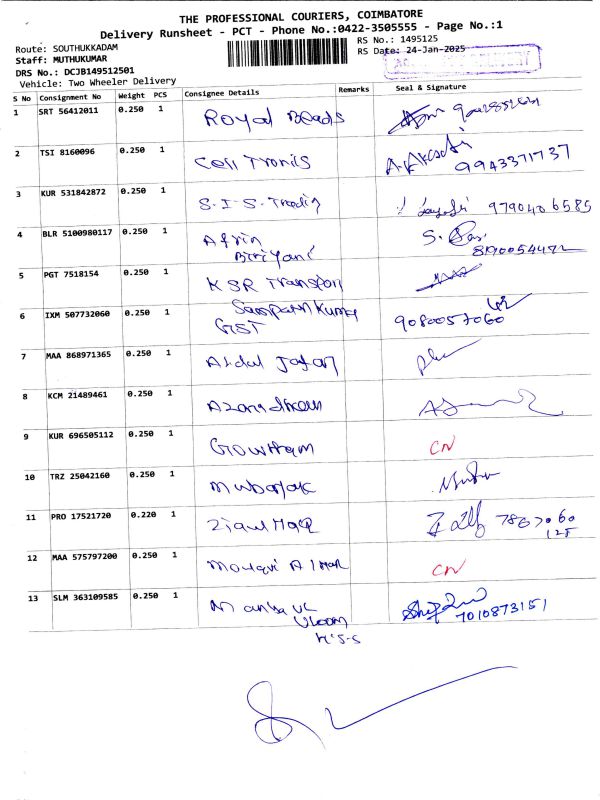 THE PROFESSIONAL COURIERS, COIMBATORE
Delivery Runsheet - PCT - Phone No.:0422-3505555 - Page No.:1
Route: SOUTHUKKADAM
RS No.: 1495125
Staff: MUTHUKUMAR
RS Date: 24-Jan-2025
DRS No.: DCJB149512501
Vehicle: Two Wheeler Delivery
S No Consignment No Weight PCS Consignee Details Remarks Seal & Signature
1 SRT 56412011 0.250 1 Royal Beads
2 TSI 8160096 0.250 1 Cell Tronics 9943371737
3 KUR 531842872 0.250 1 S.I.S. Trading 9790406585
4 BLR 5100980117 0.250 1 Afrin
Biriyani
5 PGT 7518154 0.250 1 KSR Transport
6 IXM 507732060 0.250 1 Sampath Kumar
GST 9080057060
7 MAA 868971365 0.250 1 Abdul Jafar
8 KCM 21489461 0.250 1
9 KUR 696505112 0.250 1 Gowtham CN
10 TRZ 25042160 0.250 1 Mubarak
11 PRO 17521720 0.220 1 Ziaul Haq 7867060
125
12 MAA 575797200 0.250 1 CN
13 SLM 363109585 0.250 1 7010873151
H.S.S